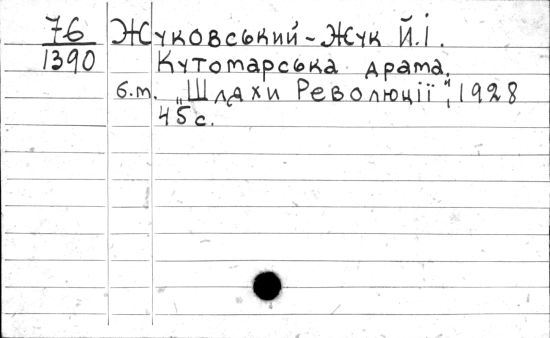 76 Жуковський-Жук Й.І.
1390 Кутомарська драма.
б.т. „Шляхи Революції", 1928
45 с.